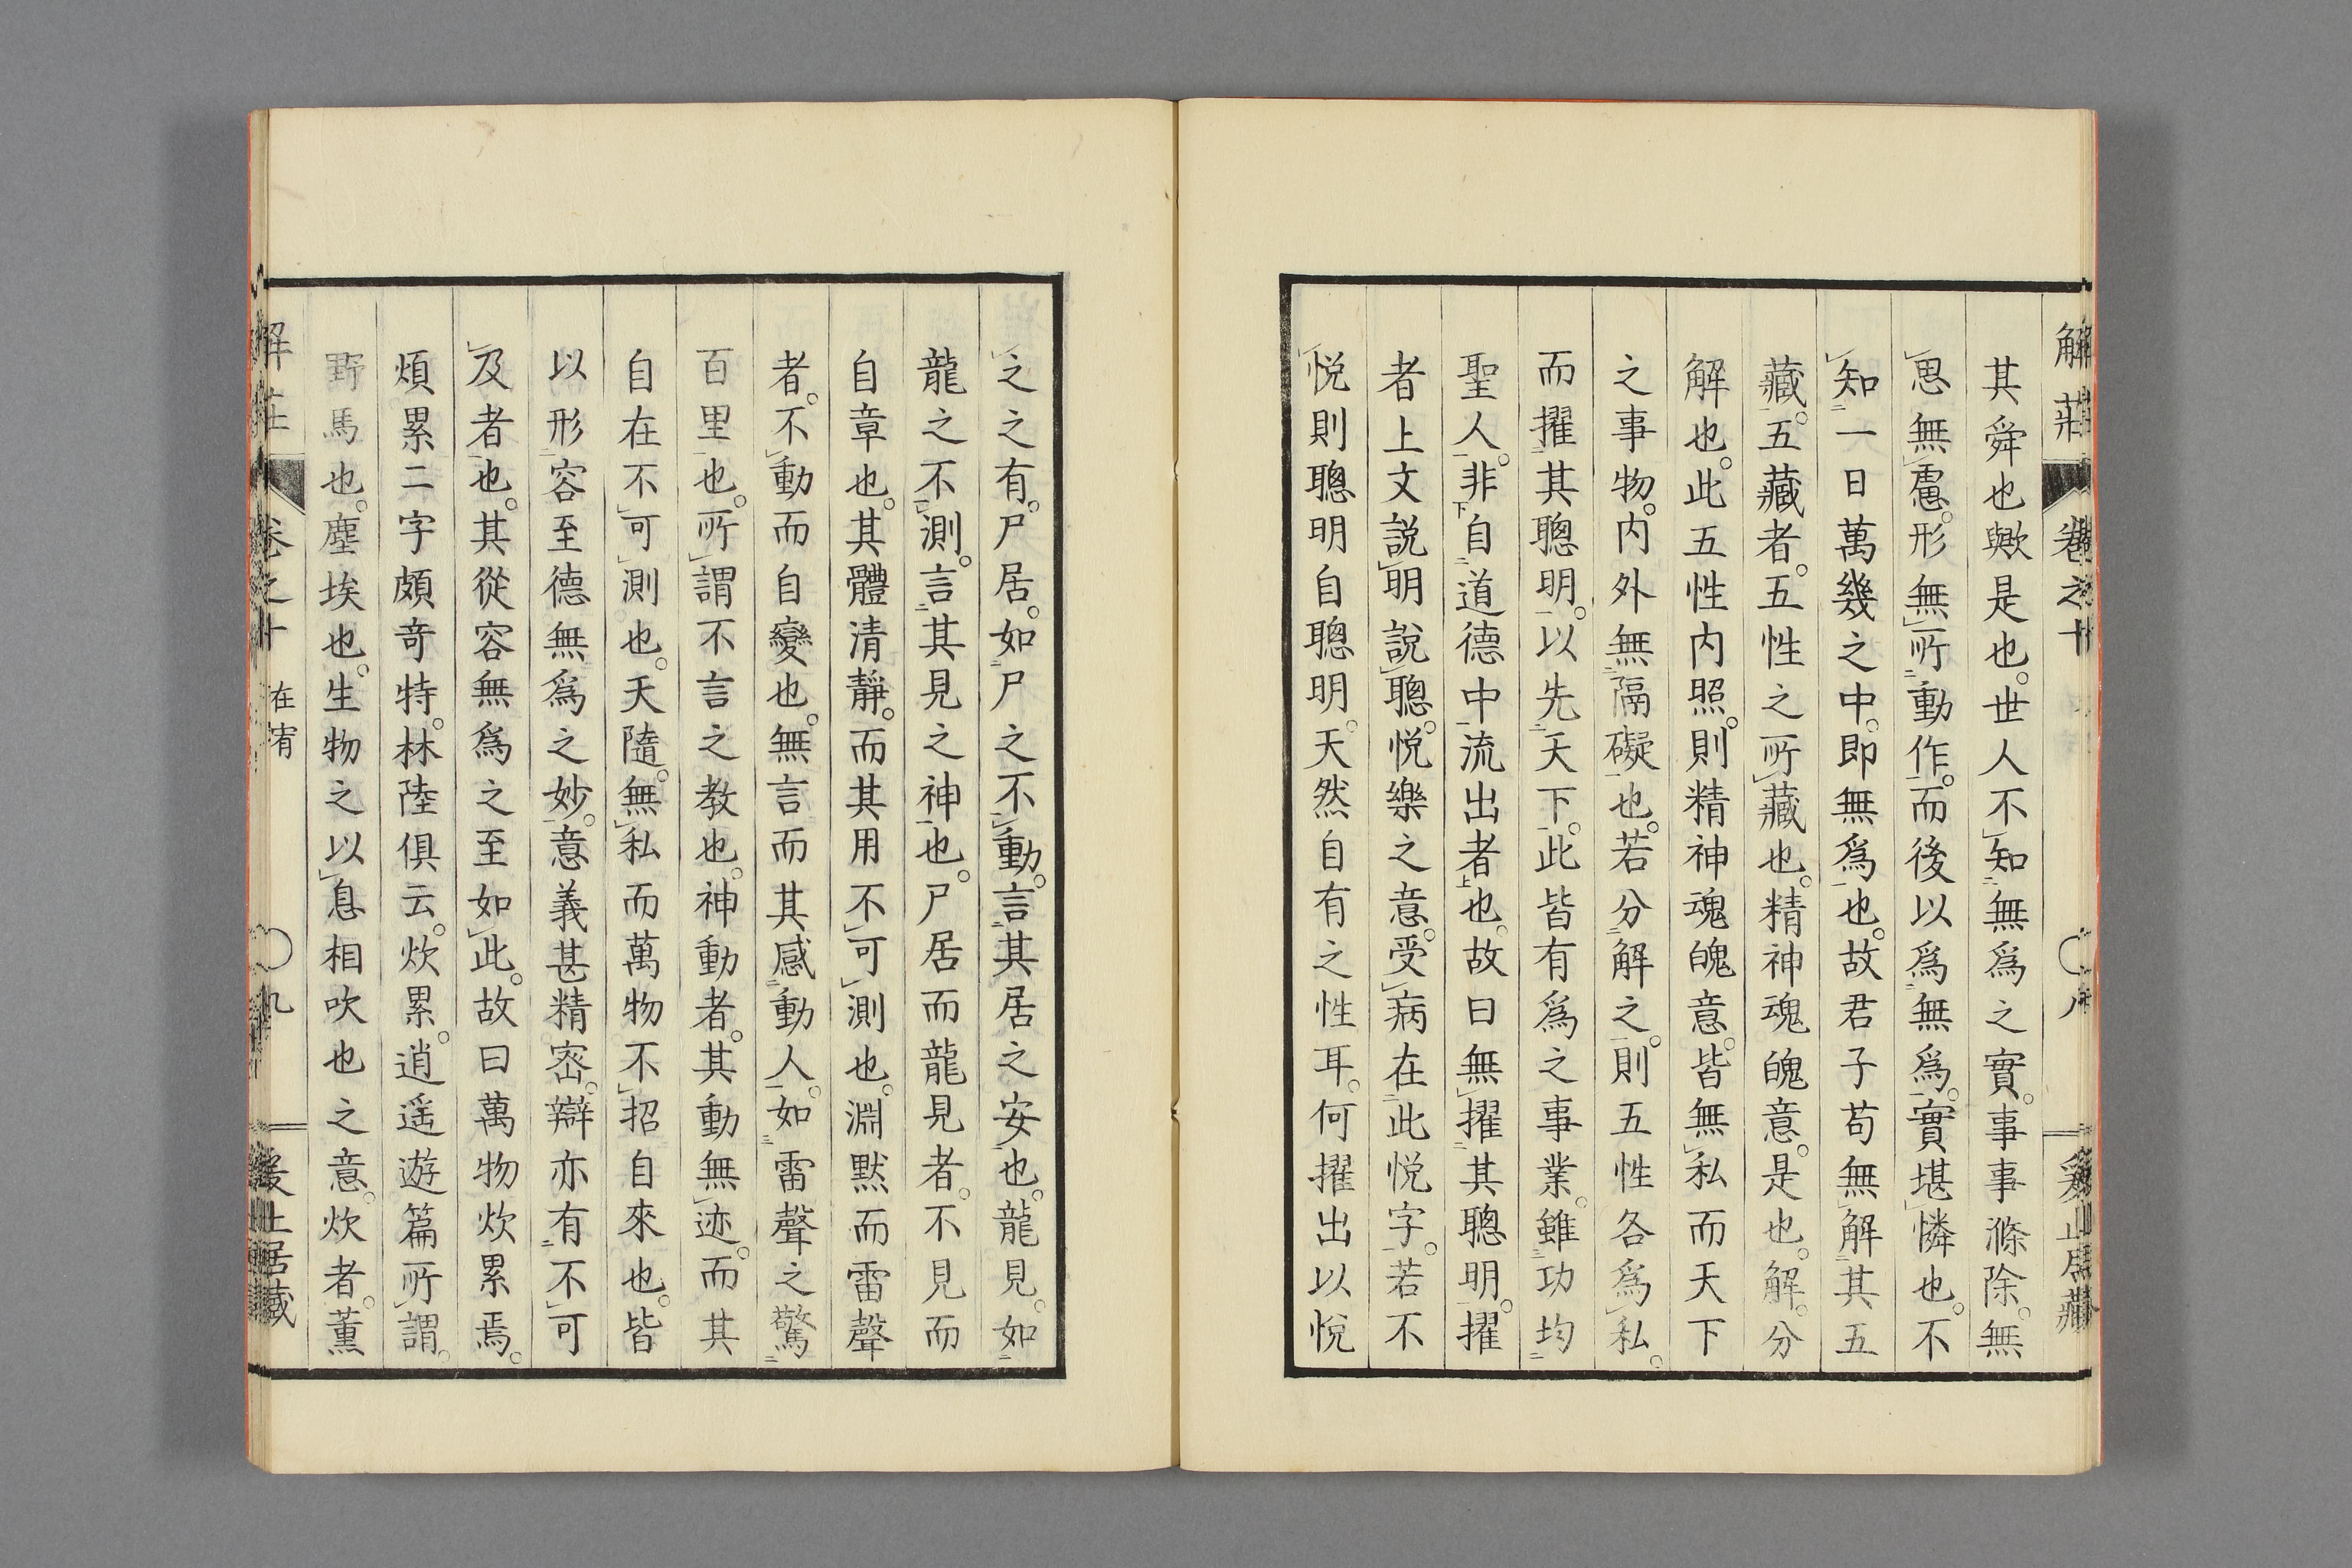 其舜也歟是也。世人不知無爲之實。事事滌除。無
思無慮。形無所動作。而後以爲無爲。實堪憐也。不
知一日萬幾之中。即無爲也。故君子苟無解其五
藏。五藏者。五性之所藏也。精神魂魄意。是也。解。分
解也。此五性内照。則精神魂魄意。皆無私而天下
之事物。内外無隔礙也。若分解之。則五性各爲私。
而擢其聰明。以先天下。此皆有爲之事業。雖功均
聖人。非自道德中流出者也。故曰無擢其聰明。擢
者上文説明説聰。悦樂之意。受病在此悦字。若不
悦則聰明自聰明。天然自有之性耳。何擢出以悦
之之有。尸居。如尸之不動。言其居之安也。龍見。如
龍之不測。言其見之神也。尸居而龍見者。不見而
自章也。其體清靜。而其用不可測也。淵黙而雷聲
者。不動而自變也。無言而其感動人。如雷聲之驚
百里也。所謂不言之教也。神動者。其動無迹。而其
自在不可測也。天隨。無私而萬物不招自來也。皆
以形容至德無爲之妙。意義甚精密。辯亦有不可
及者也。其從容無爲之至如此。故曰萬物炊累焉。
煩累二字頗奇特。林陸俱云。炊累。逍遥遊篇所謂。
野馬也。塵埃也。生物之以息相吹也之意。炊者。薫
解莊 卷之十 在宥 〇九